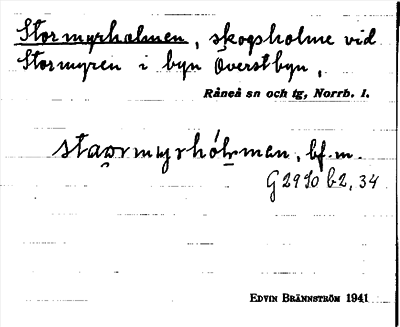 Stormyrholmen, skogsholme vid
Stormyren i byn Överstbyn,
Råneå sn och tg, Norrb. l.
bf. m.
G 2910 b2, 34
EDVIN BRÄNNSTRÖM 1941